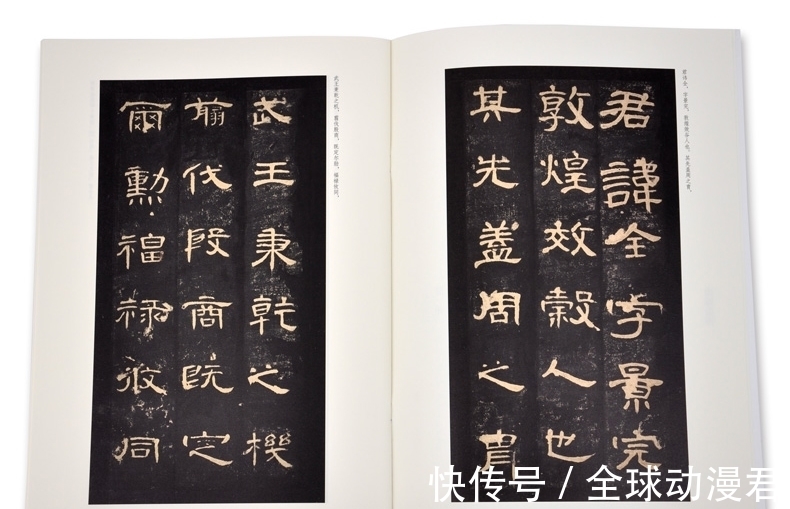 君讳全，字景完，敦煌效谷人也。其先盖周之胄，
君諱全字景完
敦煌效穀人也
其先蓋周之胄
武王秉乾之机，翦伐殷商，既定尔勋，福禄攸同。
武王秉乾之機
翦伐殷商既定
爾勳福祿攸同
快传号 / 全球动漫君